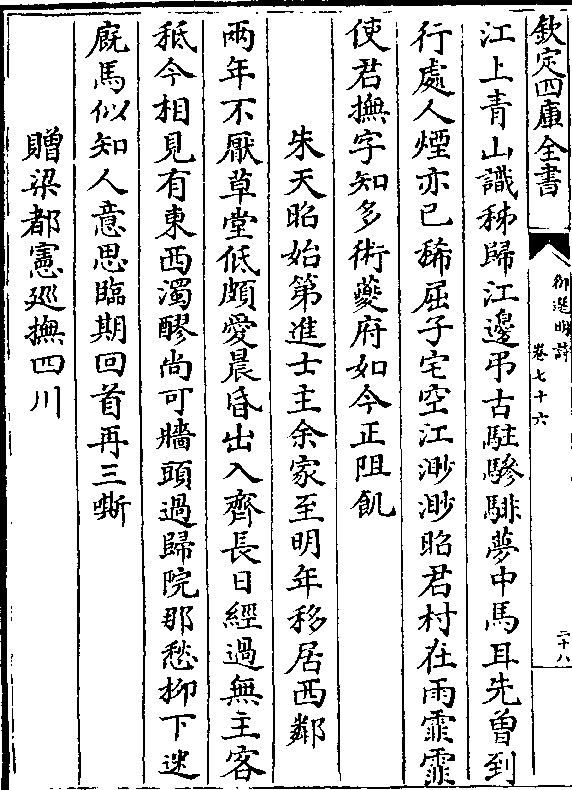 欽定四庫全書
御選明詩
卷七十六
二十八
江上青山識秭歸江邊弔古駐驂騑夢中馬耳先曽到
行處人煙亦已稀屈子宅空江渺渺昭君村在雨霏霏
使君撫字知多術夔府如今正阻飢
朱天昭始第進士主余家至明年移居西鄰
兩年不厭草堂低頗愛晨昏出入齊長日經過無主客
秪今相見有東西濁醪尚可牆頭過歸院那愁柳下迷
廐馬似知人意思臨期回首再三嘶
贈梁都憲廵撫四川